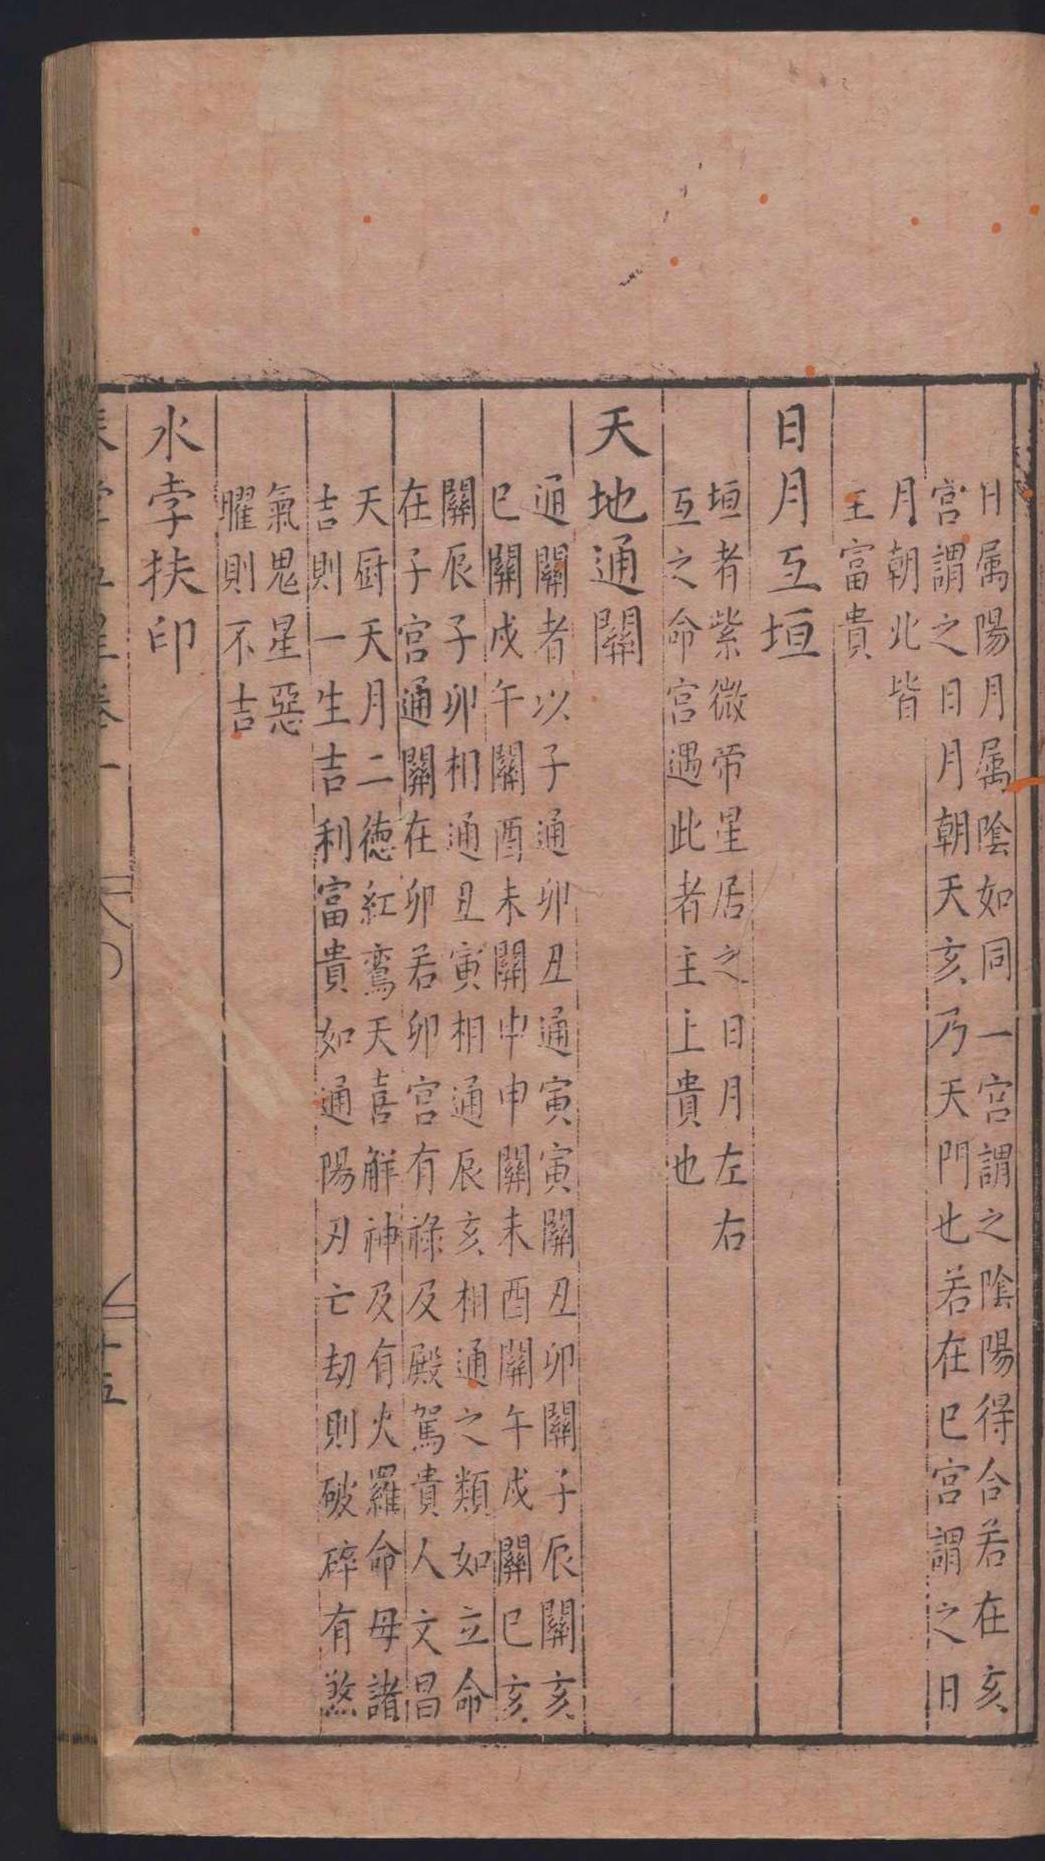 日属陽月属陰如同一宮謂之陰陽得合若在亥
宮謂之日月朝天亥乃天門也若在巳宮謂之日
月朝北皆
主富貴
日月互垣
垣者紫微帝星居之日月左右
互之命宮遇此者主上貴也
天地通關
通關者以子通卯丑通寅寅關丑卯關子辰關亥
巳關戌午關酉未關申申關未酉關午戌關巳亥
關辰子卯相通丑寅相通辰亥相通之類如立命
在子宮通關在卯若卯宮有祿及殿駕貴人文昌
天厨天月二德紅鸞天喜解神及有火羅命母諸
吉則一生吉利富貴如通陽刃亡劫則破碎有煞
氣鬼星惡
曜則不吉
水孛扶印
十五